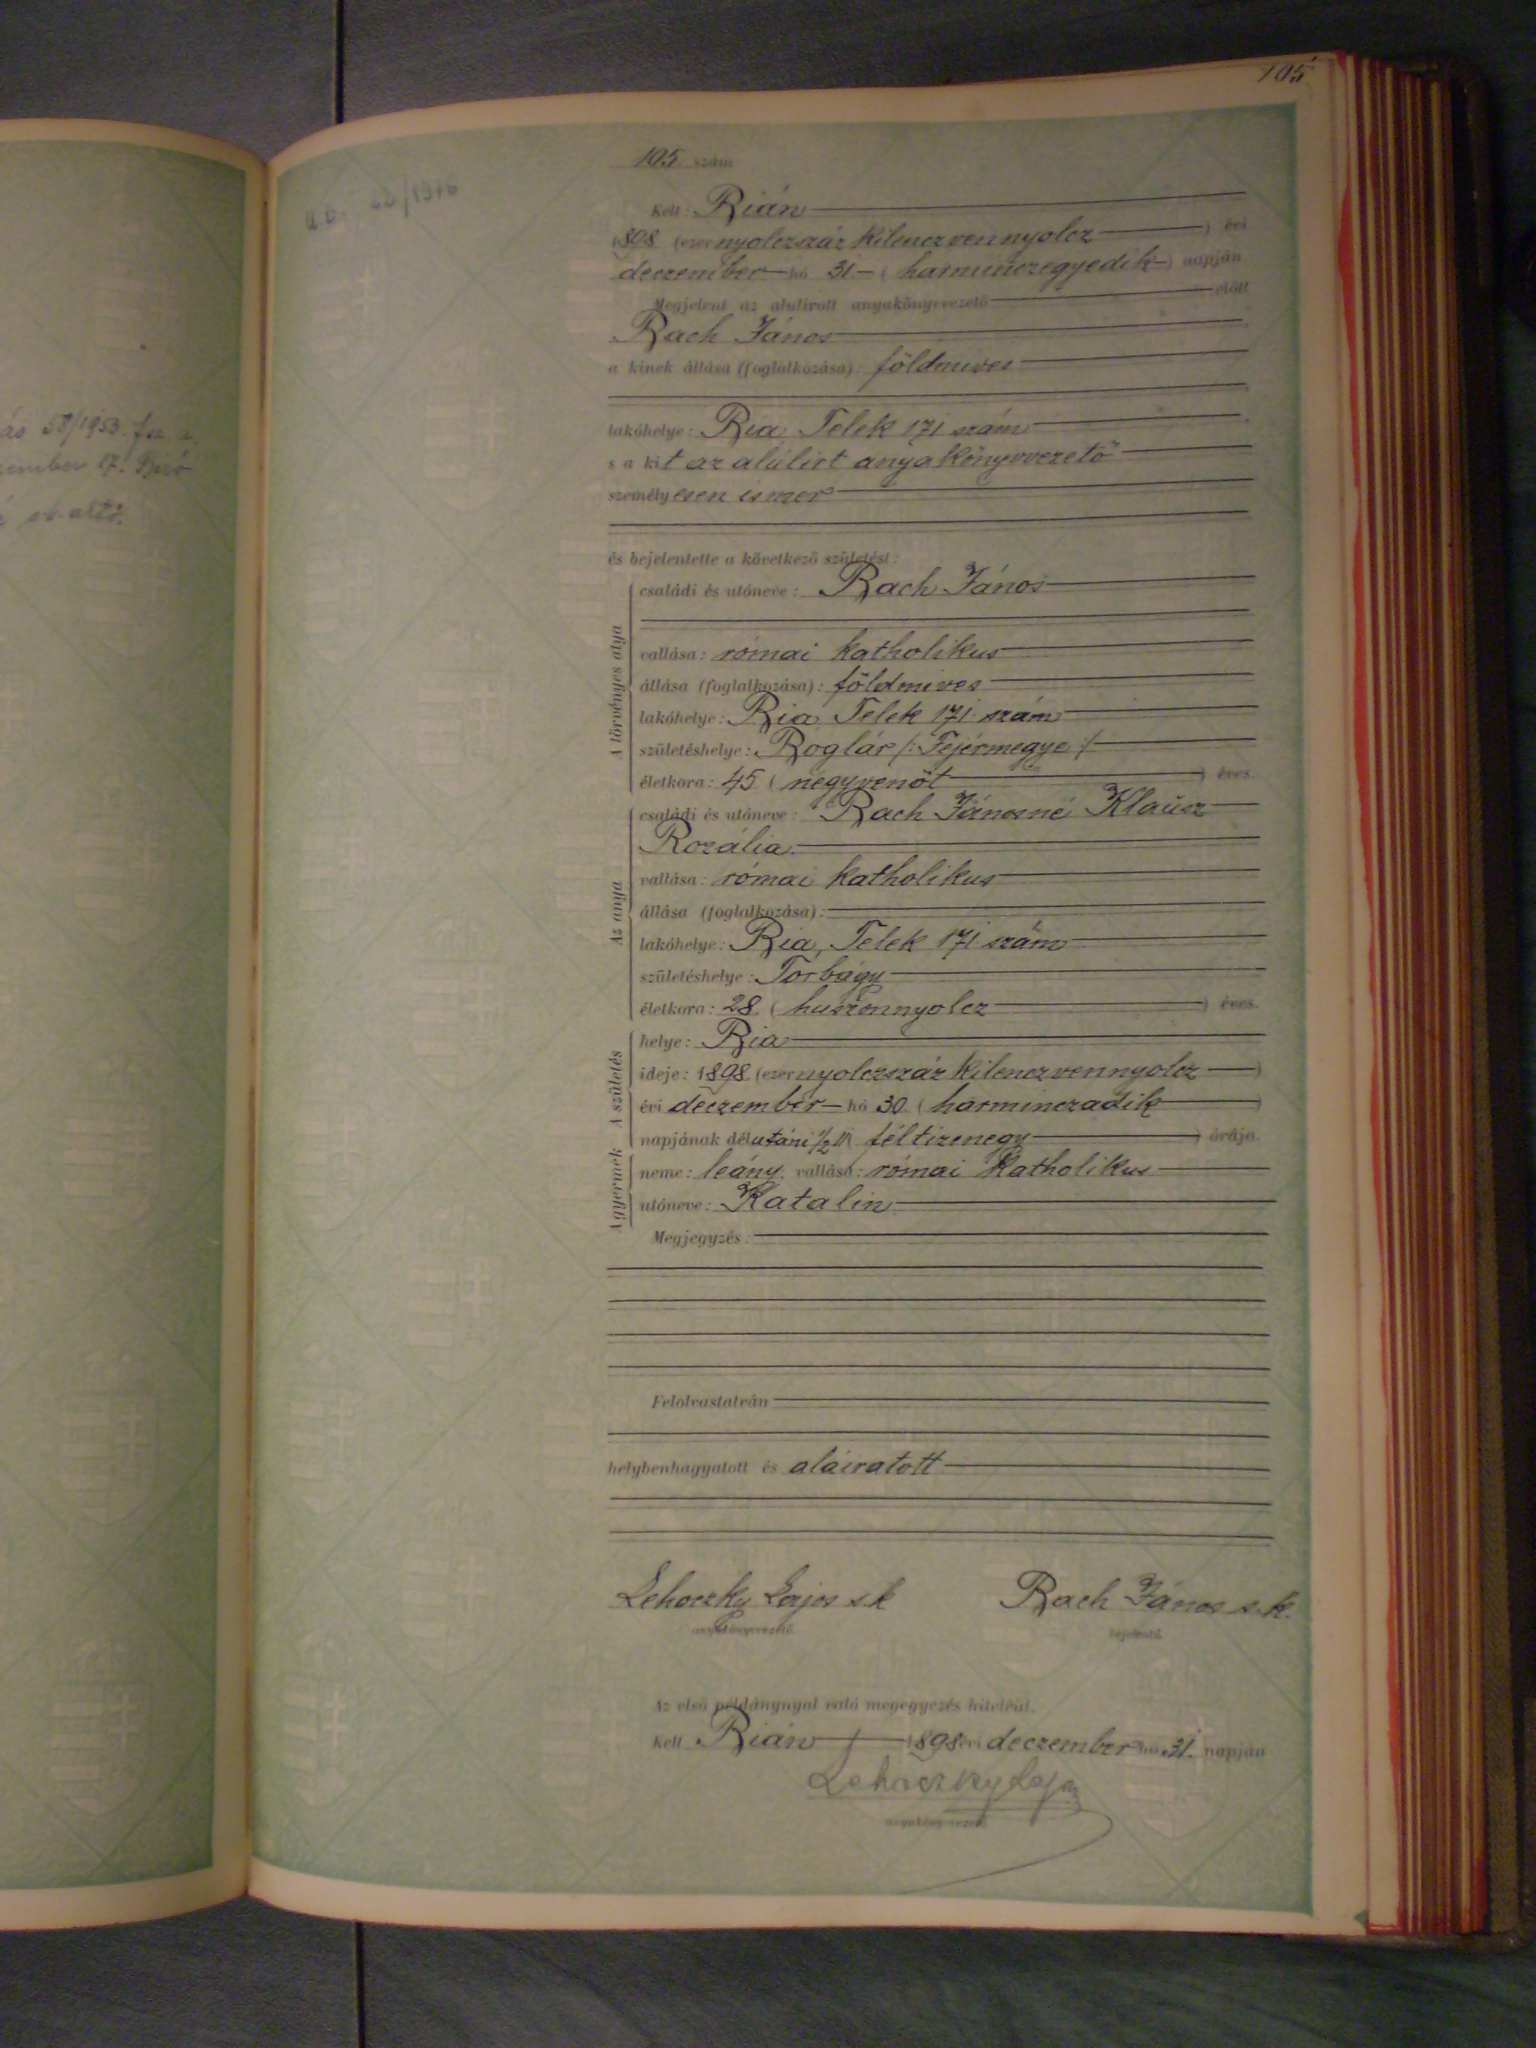 105
ás 58/1953.
17. Biró
105 szám
Kelt: Rián
1898 (ezernyolczszáz kilenczvennyolcz) évi
deczember hó 31 (harminczegyedik) napján
Megjelent az alulirott anyakönyvvezető előtt
Rach János
a kinek állása (foglalkozása): földmives
lakóhelye: Ria, Telek 171 szám
s a kit az alúlirt anyakönyvvezető
személyesen ismer
és bejelentette a következő születést:
A törvényes atya
családi és utóneve: Rach János
vallása: római katholikus
állása (foglalkozása): földmives
lakóhelye: Ria Telek 171 szám
születéshelye: Boglár /: Fejérmegye :/
életkora: 45 (negyvenöt) éves.
Az anya
családi és utóneve: Rach Jánosné, Klausz
Rozália
vallása: római katholikus
állása (foglalkozása):
lakóhelye: Ria, Telek 171 szám
születéshelye: Torbágy
életkora: 28 (huszonnyolcz) éves.
A születés
helye: Ria
ideje: 1898 (ezernyolczszáz kilenczvennyolcz)
évi deczember hó 30 (harminczadik)
napjának délutáni ½ 11 féltizenegy) órája.
A gyermek
neme: leány; vallása: római katholikus
utóneve: Katalin
Megjegyzés:
Felolvastatván
helybenhagyatott és aláiratott
Lehoczky Lajos s k
anyakönyvvezető
Rach János s. k.
bejelentő
Az első példánynyal való megegyezés hiteléül.
Kelt Rián 1898 évi deczember hó 31. napján
Lehoczky Lajos
anyakönyvvezető